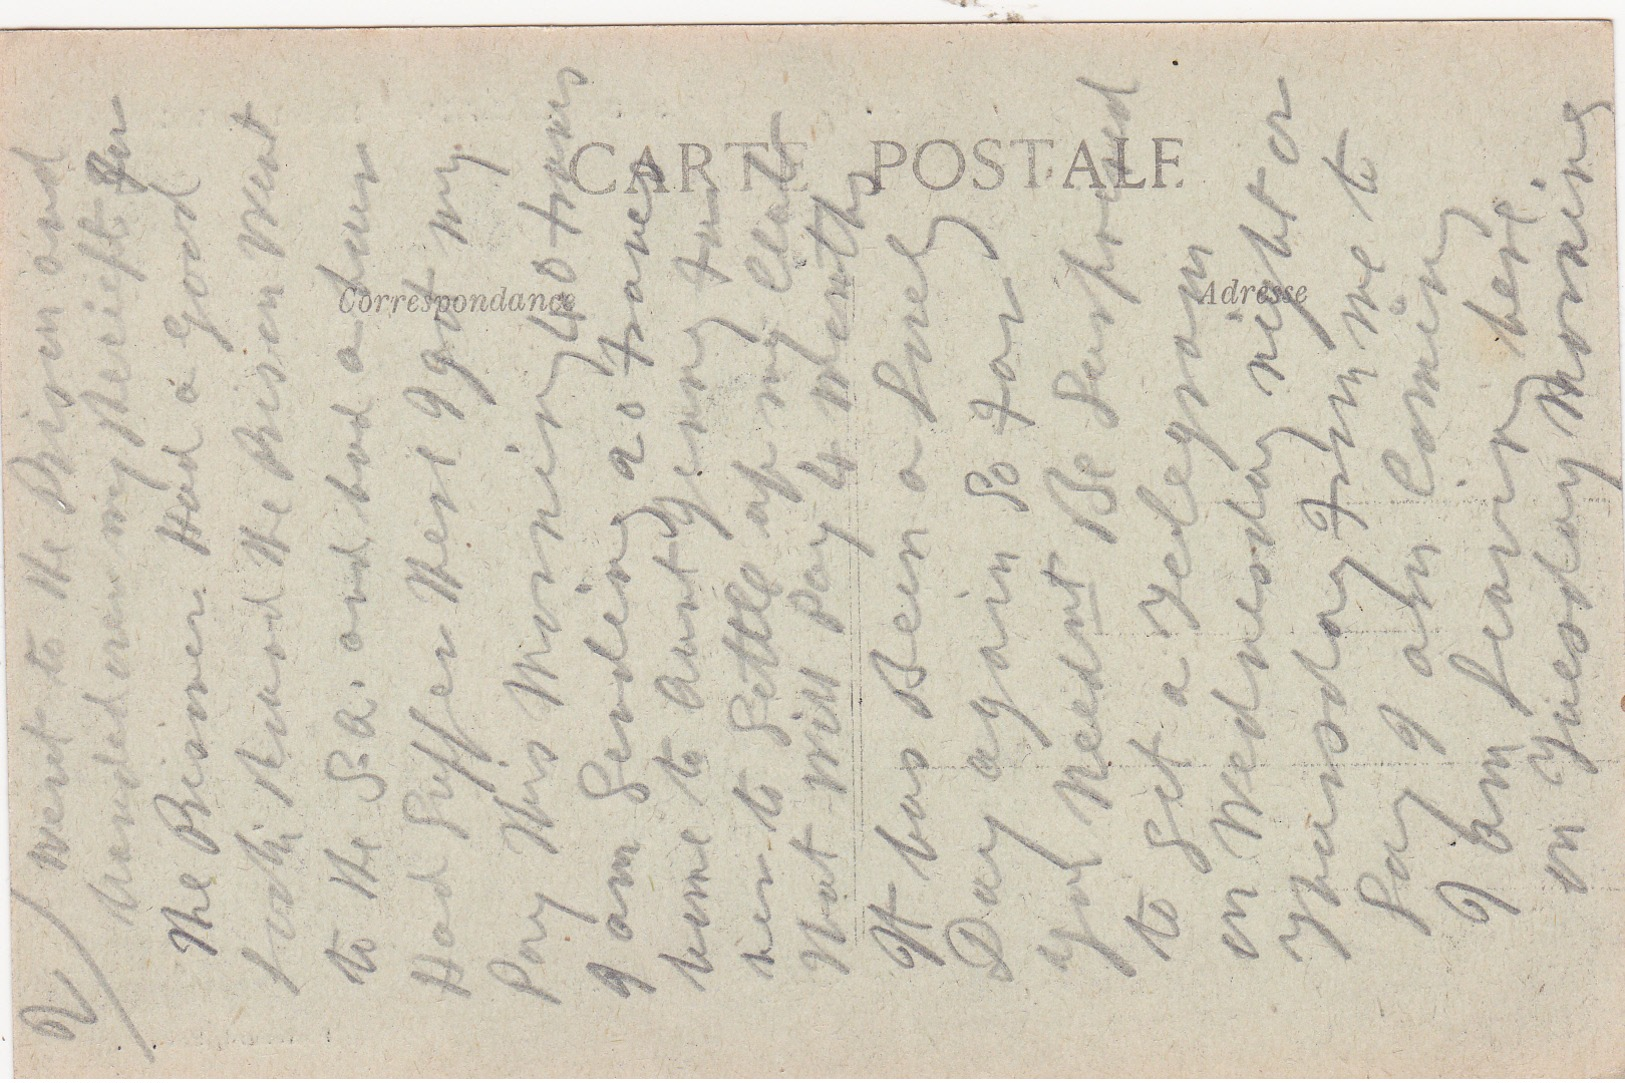 CARTE POSTALE
Correspondance
Adresse
2/ went to the Prison and
handed over my Receipt for
the Prisoner Had a good
look Round the Prison Went
to the S.A. and had a
Had Supper there I got my
Pay this Morning 40 francs
I am Sending 20 francs
home to Aunt Jenny for
her to Settle up my Club
that will pay 4 months
It has Been a lovely
Day again So far
You Neednt Be Surprised
to get a Telegram
on Wednesday night or
Thursday from me to
Say I am Coming
I am leaving here
on Tuesday Morning